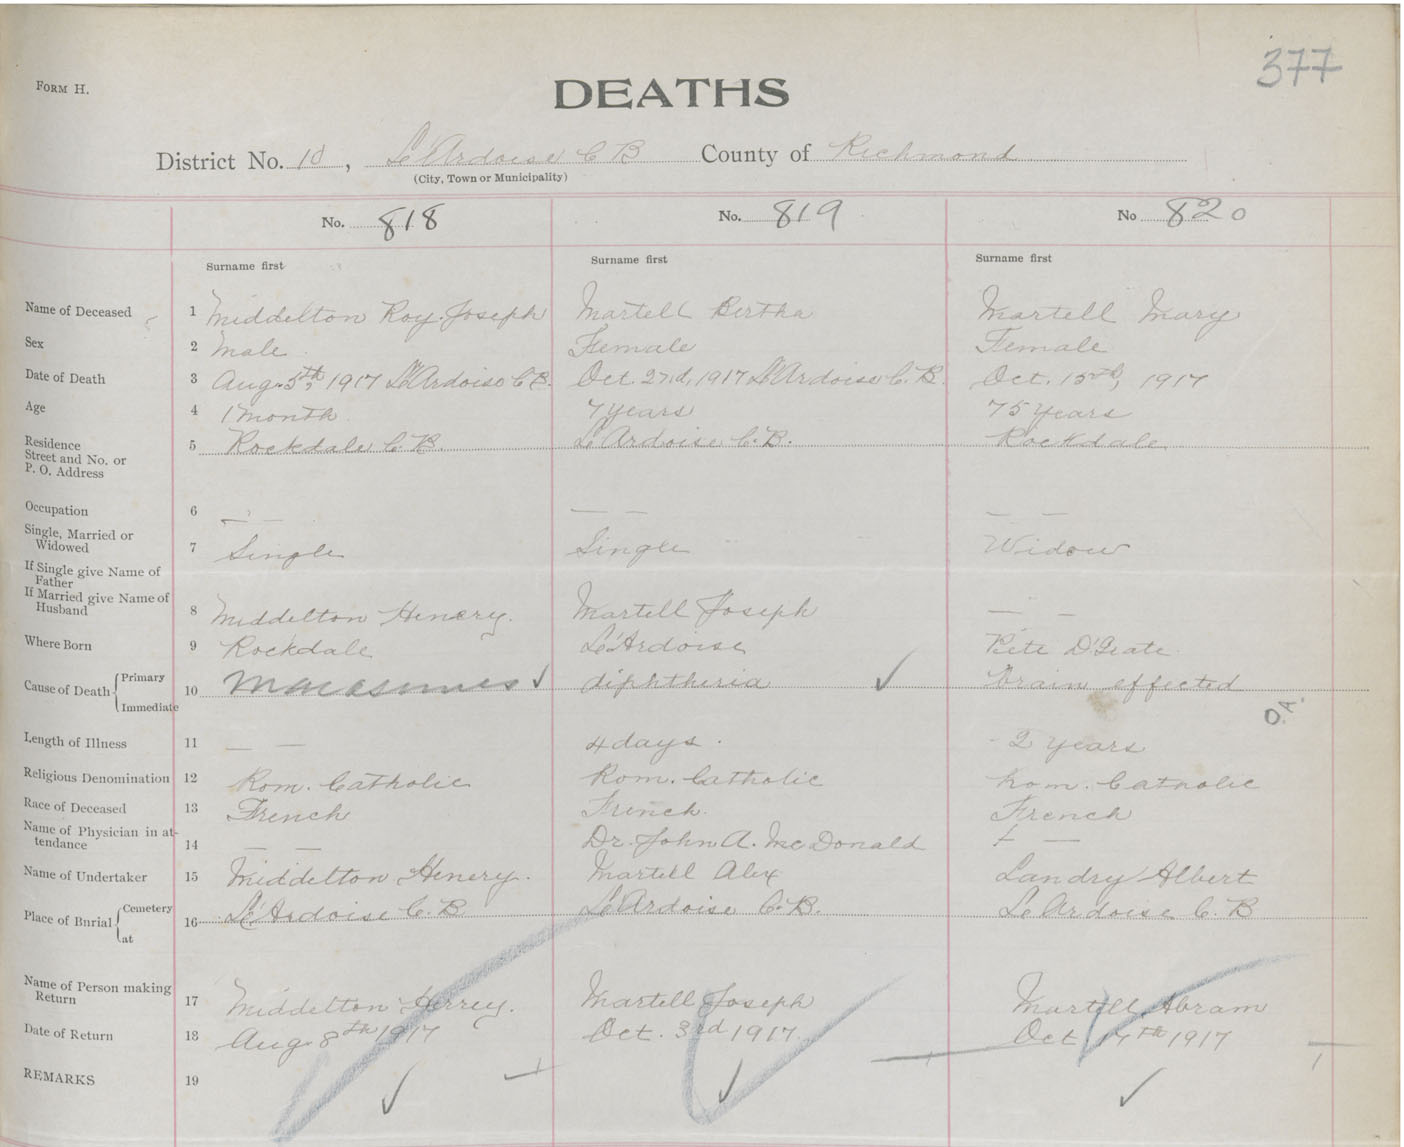 377
FORM H.
DEATHS
District No. 10, Le Ardoise C B County of Richmond
(City, Town or Municipality)
No. 818 No. 819 No 820
Surname first Surname first Surname first
Name of Deceased 1 Middelton Roy Joseph Martell Bertha Martell Mary
Sex 2 Male Female Female
Date of Death 3 Aug. 5th 1917 L'Ardoise C B. Oct. 2nd, 1917 L'Ardoise C. B. Oct. 15th, 1917
Age 4 1 month 7 years 75 years
Residence
Street and No. or
P. O. Address 5 Rockdale C B. L'Ardoise C. B. Rockdale
Occupation 6 — — — — — —
Single, Married or
Widowed 7 Single Single Widow
If Single give Name of
Father
If Married give Name of
Husband 8 Middelton Henery. Martell Joseph — —
Where Born 9 Rockdale L'Ardoise
Cause of Death Primary
Immediate 10 diphtheria Brain effected
O.A.
Length of Illness 11 — — 4 days. 2 years
Religious Denomination 12 Rom. Catholic Rom. Catholic Rom. Catholic
Race of Deceased 13 French French. French
Name of Physician in at-
tendance 14 — — Dr. John A. McDonald —
Name of Undertaker 15 Middelton Henery. Martell Alex Landry Albert
Place of Burial Cemetery
at 16 Le Ardoise C. B. Le Ardoise C. B. Le Ardoise C. B
Name of Person making
Return 17 Middelton Martell Joseph Martell Abram
Date of Return 18 Aug 8th 1917 Oct. 3rd 1917. Oct 17th 1917
REMARKS 19